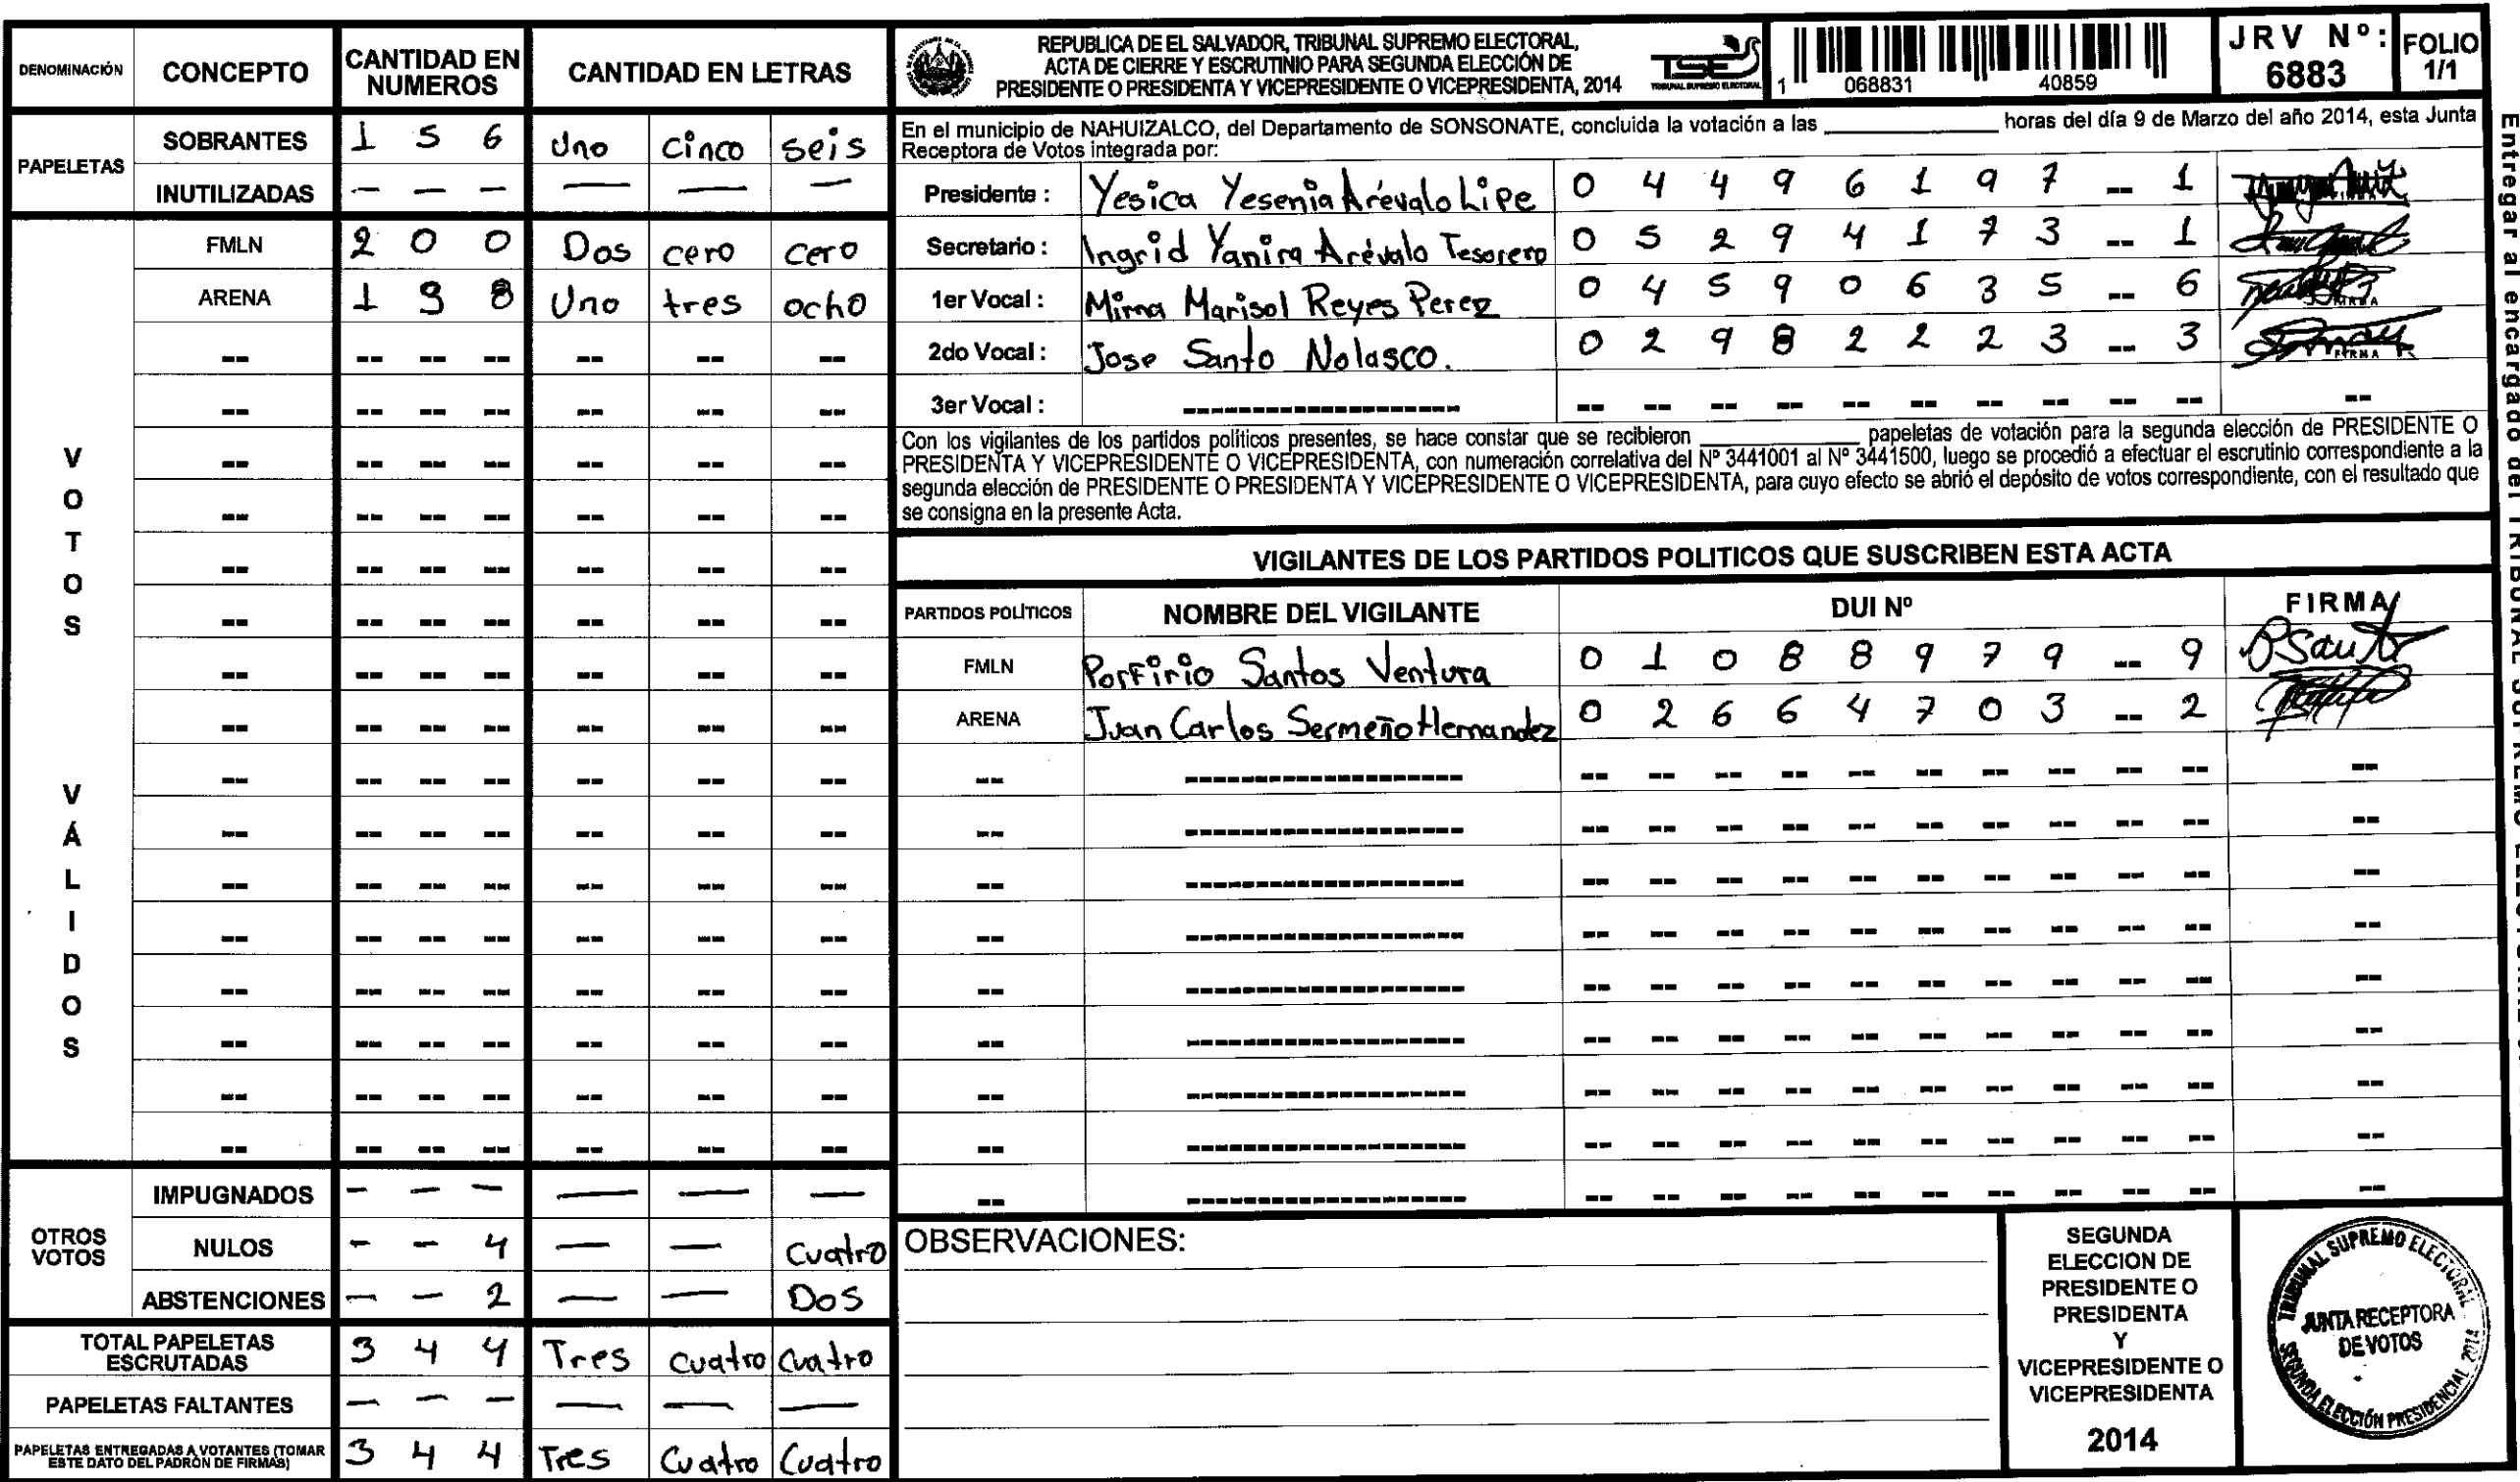 DENOMINACIÓN CONCEPTO CANTIDAD EN NUMEROS CANTIDAD EN LETRAS
PAPELETAS
SOBRANTES 1 5 6 Uno cinco seis
INUTILIZADAS — — — — — —
VOTOS VÁLIDOS
FMLN 2 0 0 Dos cero cero
ARENA 1 3 8 Uno tres ocho
OTROS VOTOS
IMPUGNADOS — — — — — —
NULOS — — 4 — — Cuatro
ABSTENCIONES — — 2 — — Dos
TOTAL PAPELETAS ESCRUTADAS 3 4 4 Tres cuatro cuatro
PAPELETAS FALTANTES — — — — — —
PAPELETAS ENTREGADAS A VOTANTES (TOMAR ESTE DATO DEL PADRÓN DE FIRMAS) 3 4 4 Tres Cuatro Cuatro
REPUBLICA DE EL SALVADOR, TRIBUNAL SUPREMO ELECTORAL,
ACTA DE CIERRE Y ESCRUTINIO PARA SEGUNDA ELECCIÓN DE
PRESIDENTE O PRESIDENTA Y VICEPRESIDENTE O VICEPRESIDENTA, 2014
TSE
TRIBUNAL SUPREMO ELECTORAL
1 068831 40859
JRV Nº: 6883
FOLIO 1/1
En el municipio de NAHUIZALCO, del Departamento de SONSONATE, concluida la votación a las ____________ horas del día 9 de Marzo del año 2014, esta Junta
Receptora de Votos integrada por:
Presidente : Yesica Yesenia Arévalo Lipe 0 4 4 9 6 1 9 7 -- 1
Secretario : Ingrid Yanira Arévalo Tesorero 0 5 2 9 4 1 7 3 -- 1
1er Vocal : Mirna Marisol Reyes Perez 0 4 5 9 0 6 3 5 -- 6
2do Vocal : Jose Santo Nolasco. 0 2 9 8 2 2 2 3 -- 3
3er Vocal : -------------------- -- -- -- -- -- -- -- -- -- -- --
Con los vigilantes de los partidos políticos presentes, se hace constar que se recibieron ____________ papeletas de votación para la segunda elección de PRESIDENTE O
PRESIDENTA Y VICEPRESIDENTE O VICEPRESIDENTA, con numeración correlativa del Nº 3441001 al Nº 3441500, luego se procedió a efectuar el escrutinio correspondiente a la
segunda elección de PRESIDENTE O PRESIDENTA Y VICEPRESIDENTE O VICEPRESIDENTA, para cuyo efecto se abrió el depósito de votos correspondiente, con el resultado que
se consigna en la presente Acta.
VIGILANTES DE LOS PARTIDOS POLITICOS QUE SUSCRIBEN ESTA ACTA
PARTIDOS POLÍTICOS NOMBRE DEL VIGILANTE DUI Nº FIRMA
FMLN Porfirio Santos Ventura 0 1 0 8 8 9 7 9 -- 9
ARENA Juan Carlos Sermeño Hernandez 0 2 6 6 4 7 0 3 -- 2
OBSERVACIONES:
SEGUNDA
ELECCION DE
PRESIDENTE O
PRESIDENTA
Y
VICEPRESIDENTE O
VICEPRESIDENTA
2014
TRIBUNAL SUPREMO ELECTORAL
JUNTA RECEPTORA
DE VOTOS
SEGUNDA ELECCIÓN PRESIDENCIAL 2014
Entregar al encargado del TRIBUNAL SUPREMO